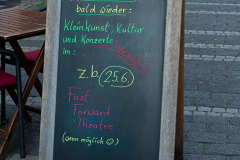 bald wieder:
Kleinkunst, Kultur
und Konzerte
im:
z.b. 25.6.
Fast
Forward
Theatre
(wenn möglich ☺)